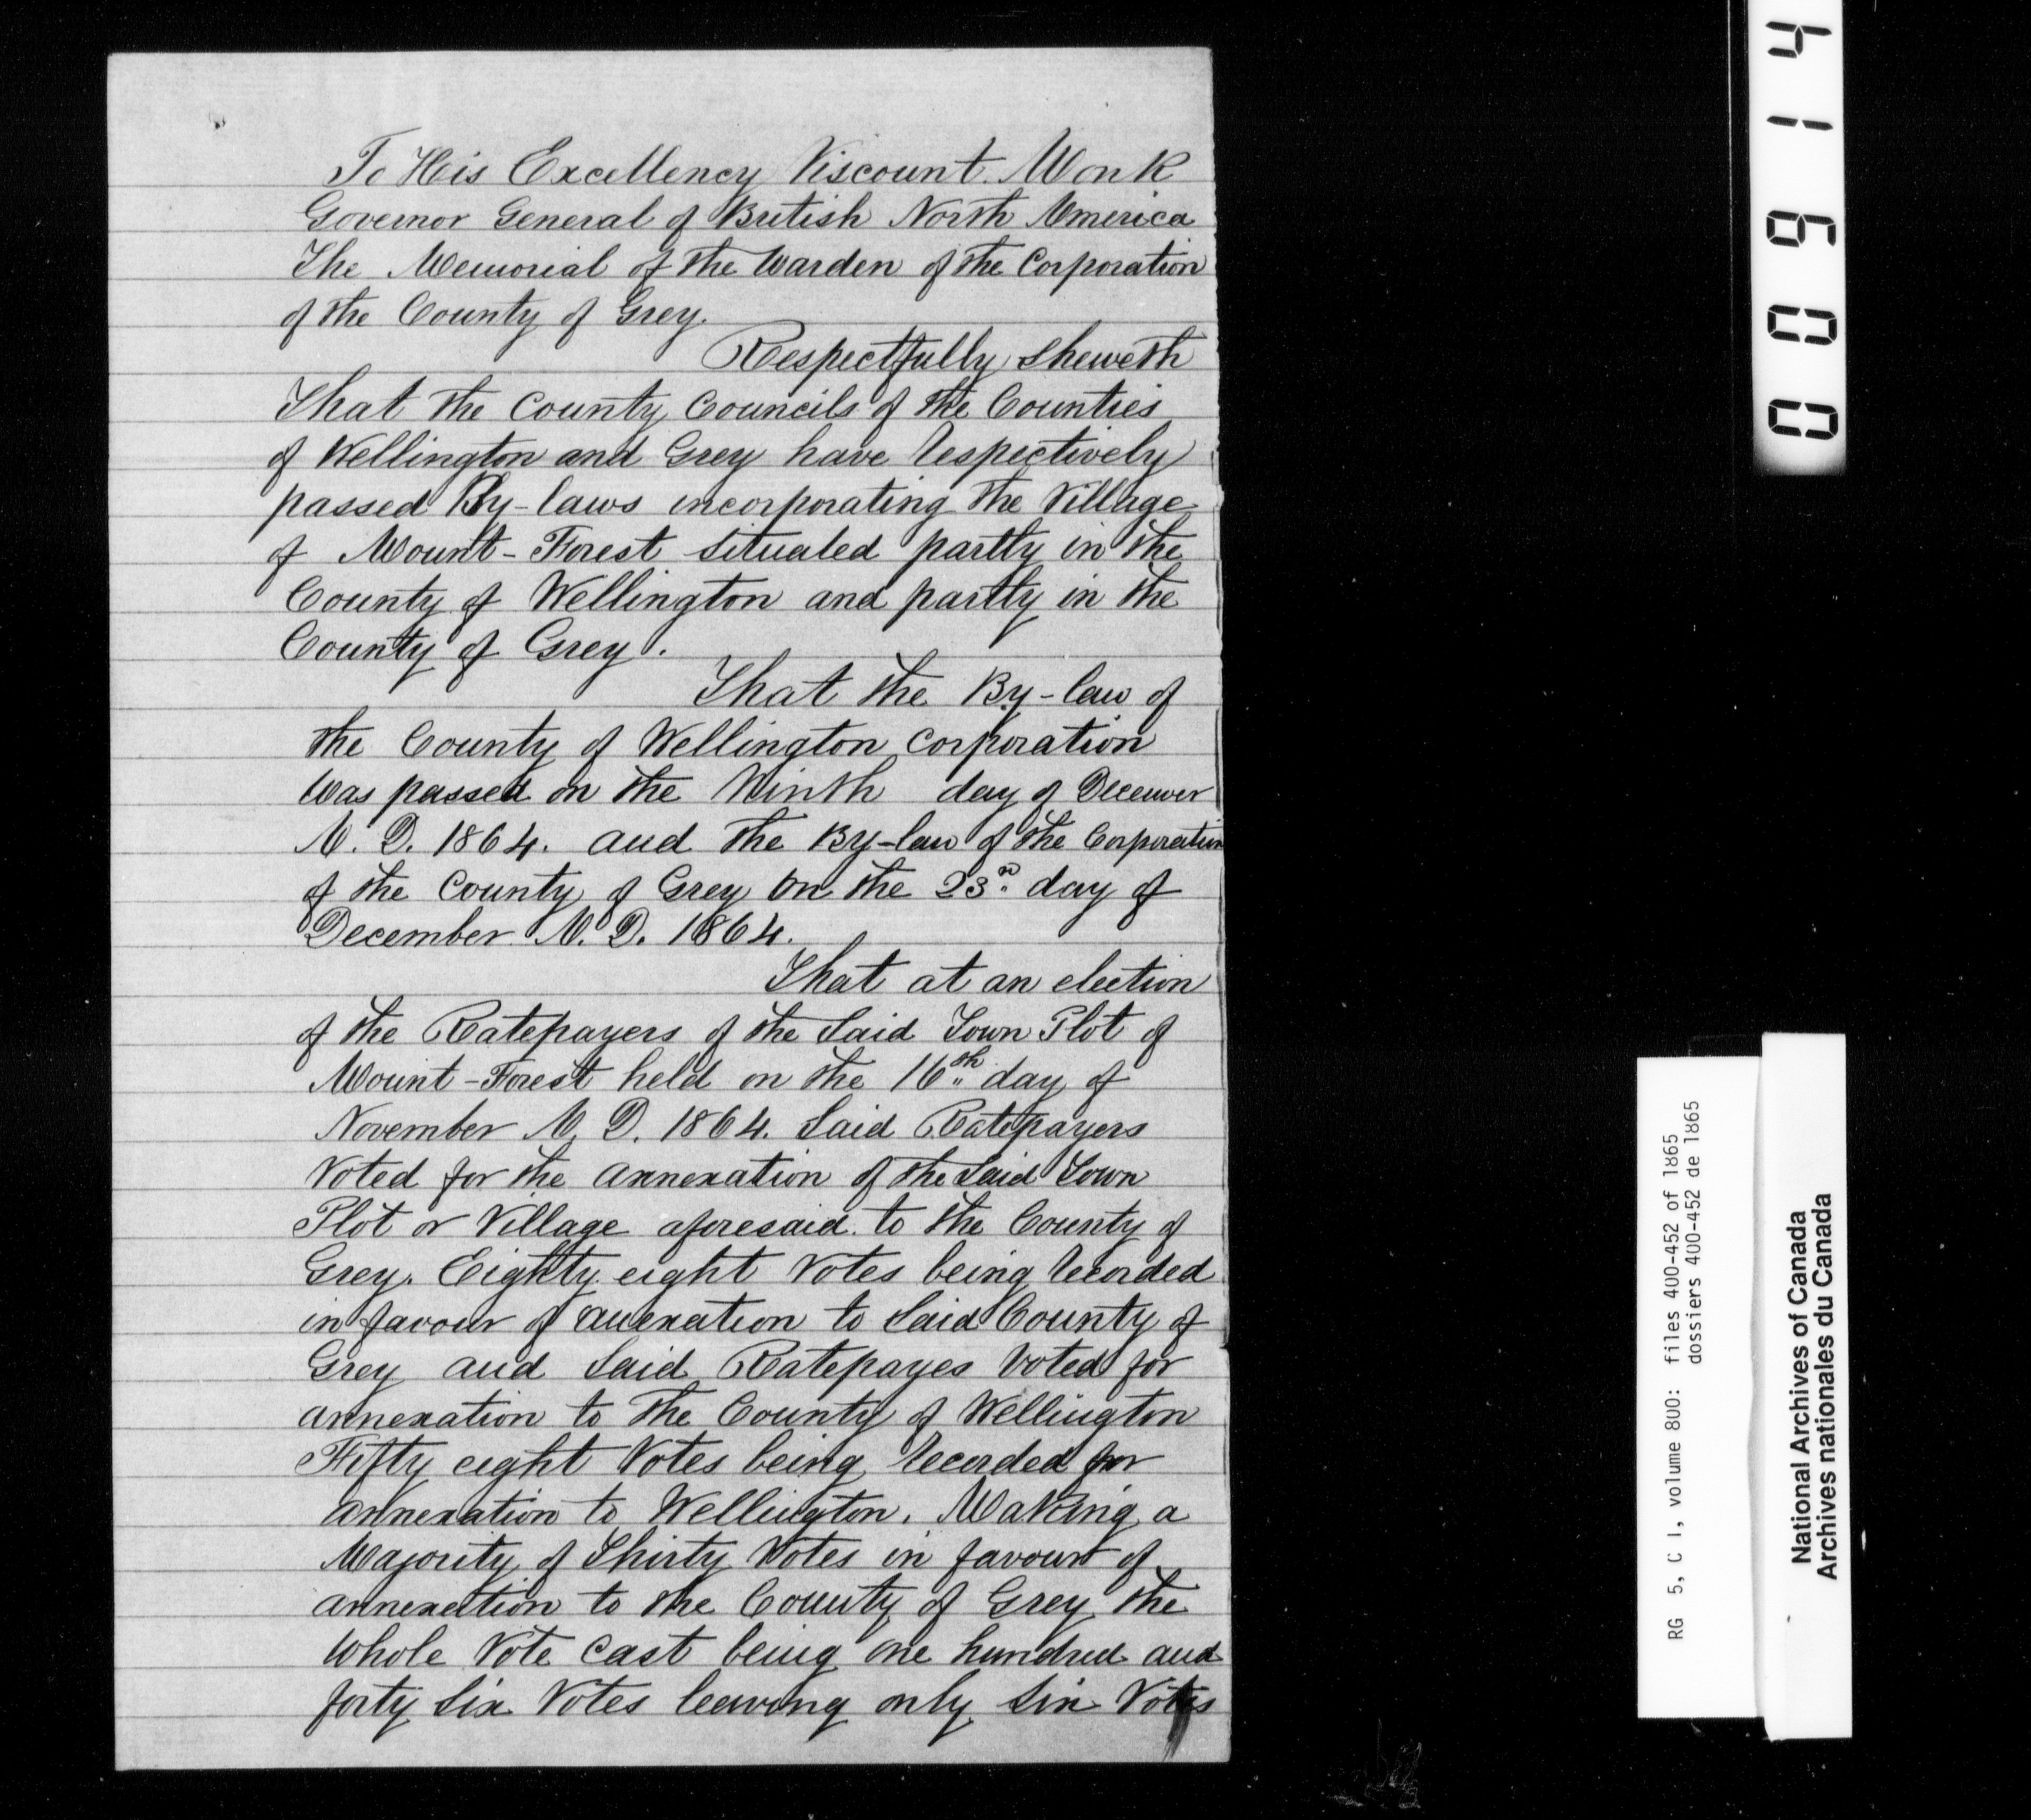 To His Excellency Viscount Monk
Governor General of British North America
The Memorial of the Warden of the Corporation
of the County of Grey.
Respectfully Sheweth
That the County Councils of the Counties
of Wellington and Grey have respectively
passed By-laws incorporating the Village
of Mount-Forest situated partly in the
County of Wellington and partly in the
County of Grey.
That the By-law of
the County of Wellington Corporation
was passed on the Ninth day of Decemver
A. D. 1864. and the By-law of the Corporation
of the County of Grey on the 23rd day of
December A. D. 1864.
That at an election
of the Ratepayers of the Said Town Plot of
Mount-Forest held on the 16th day of
November A. D. 1864. Said Ratepayers
Voted for the annexation of the Said Town
Plot or Village aforesaid to the County of
Grey. Eighty eight Votes being recorded
in favour of anexation to Said County of
Grey and Said Ratepayes Voted for
annexation to the County of Wellington
Fifty eight Votes being recorded for
annexation to Wellington. Making a
Majority of Thirty Votes in favour of
annexation to the County of Grey the
Whole Vote Cast being one hundred and
forty Six Votes leaving only Six Votes
000914
RG 5, C 1, volume 800: files 400-452 of 1865
dossiers 400-452 de 1865
National Archives of Canada
Archives nationales du Canada